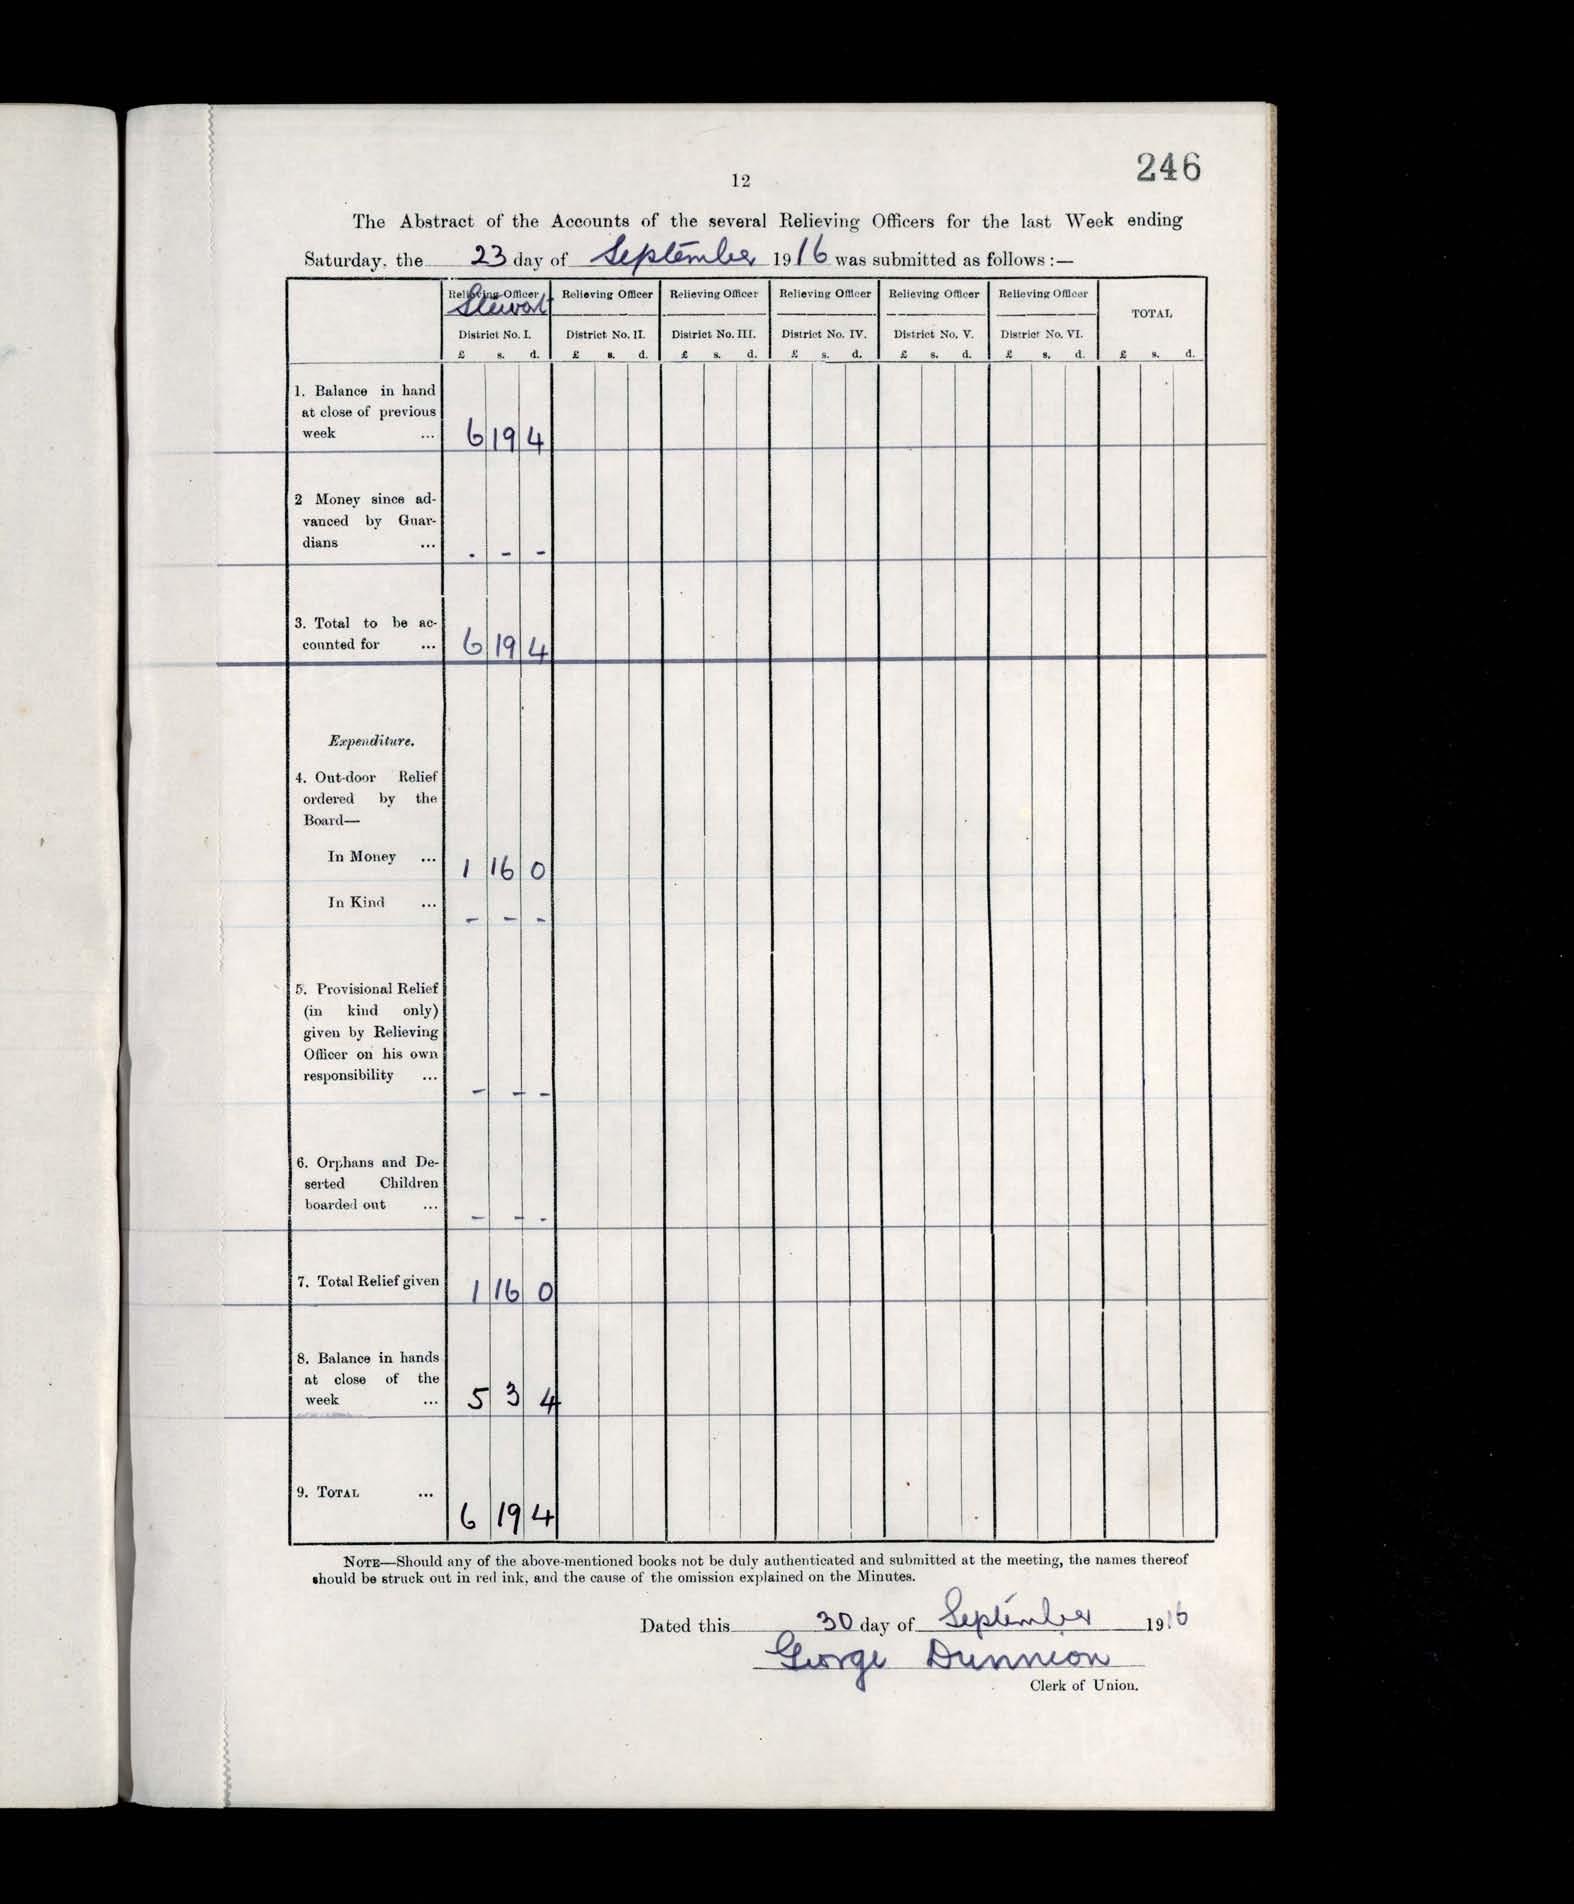 246
12
The Abstract of the Accounts of the several Relieving Officers for the last Week ending
Saturday, the 23 day of September 1916 was submitted as follows :—
Relieving Officer Relieving Officer Relieving Officer Relieving Officer Relieving Officer Relieving Officer TOTAL
Stewart
District No. I. District No. II. District No. III. District No. IV. District No. V. District No. VI.
£ s. d. £ s. d. £ s. d. £ s. d. £ s. d. £ s. d. £ s. d.
1. Balance in hand
at close of previous
week ... 6 19 4
2 Money since ad-
vanced by Guar-
dians ... . - -
3. Total to be ac-
counted for ... 6 19 4
Expenditure.
4. Out-door Relief
ordered by the
Board—
In Money ... 1 16 0
In Kind ... - - -
5. Provisional Relief
(in kind only)
given by Relieving
Officer on his own
responsibility ... - - -
6. Orphans and De-
serted Children
boarded out ... - - -
7. Total Relief given 1 16 0
8. Balance in hands
at close of the
week ... 5 3 4
9. TOTAL ... 6 19 4
NOTE—Should any of the above-mentioned books not be duly authenticated and submitted at the meeting, the names thereof
should be struck out in red ink, and the cause of the omission explained on the Minutes.
Dated this 30 day of September 1916
George Dunnion
Clerk of Union.